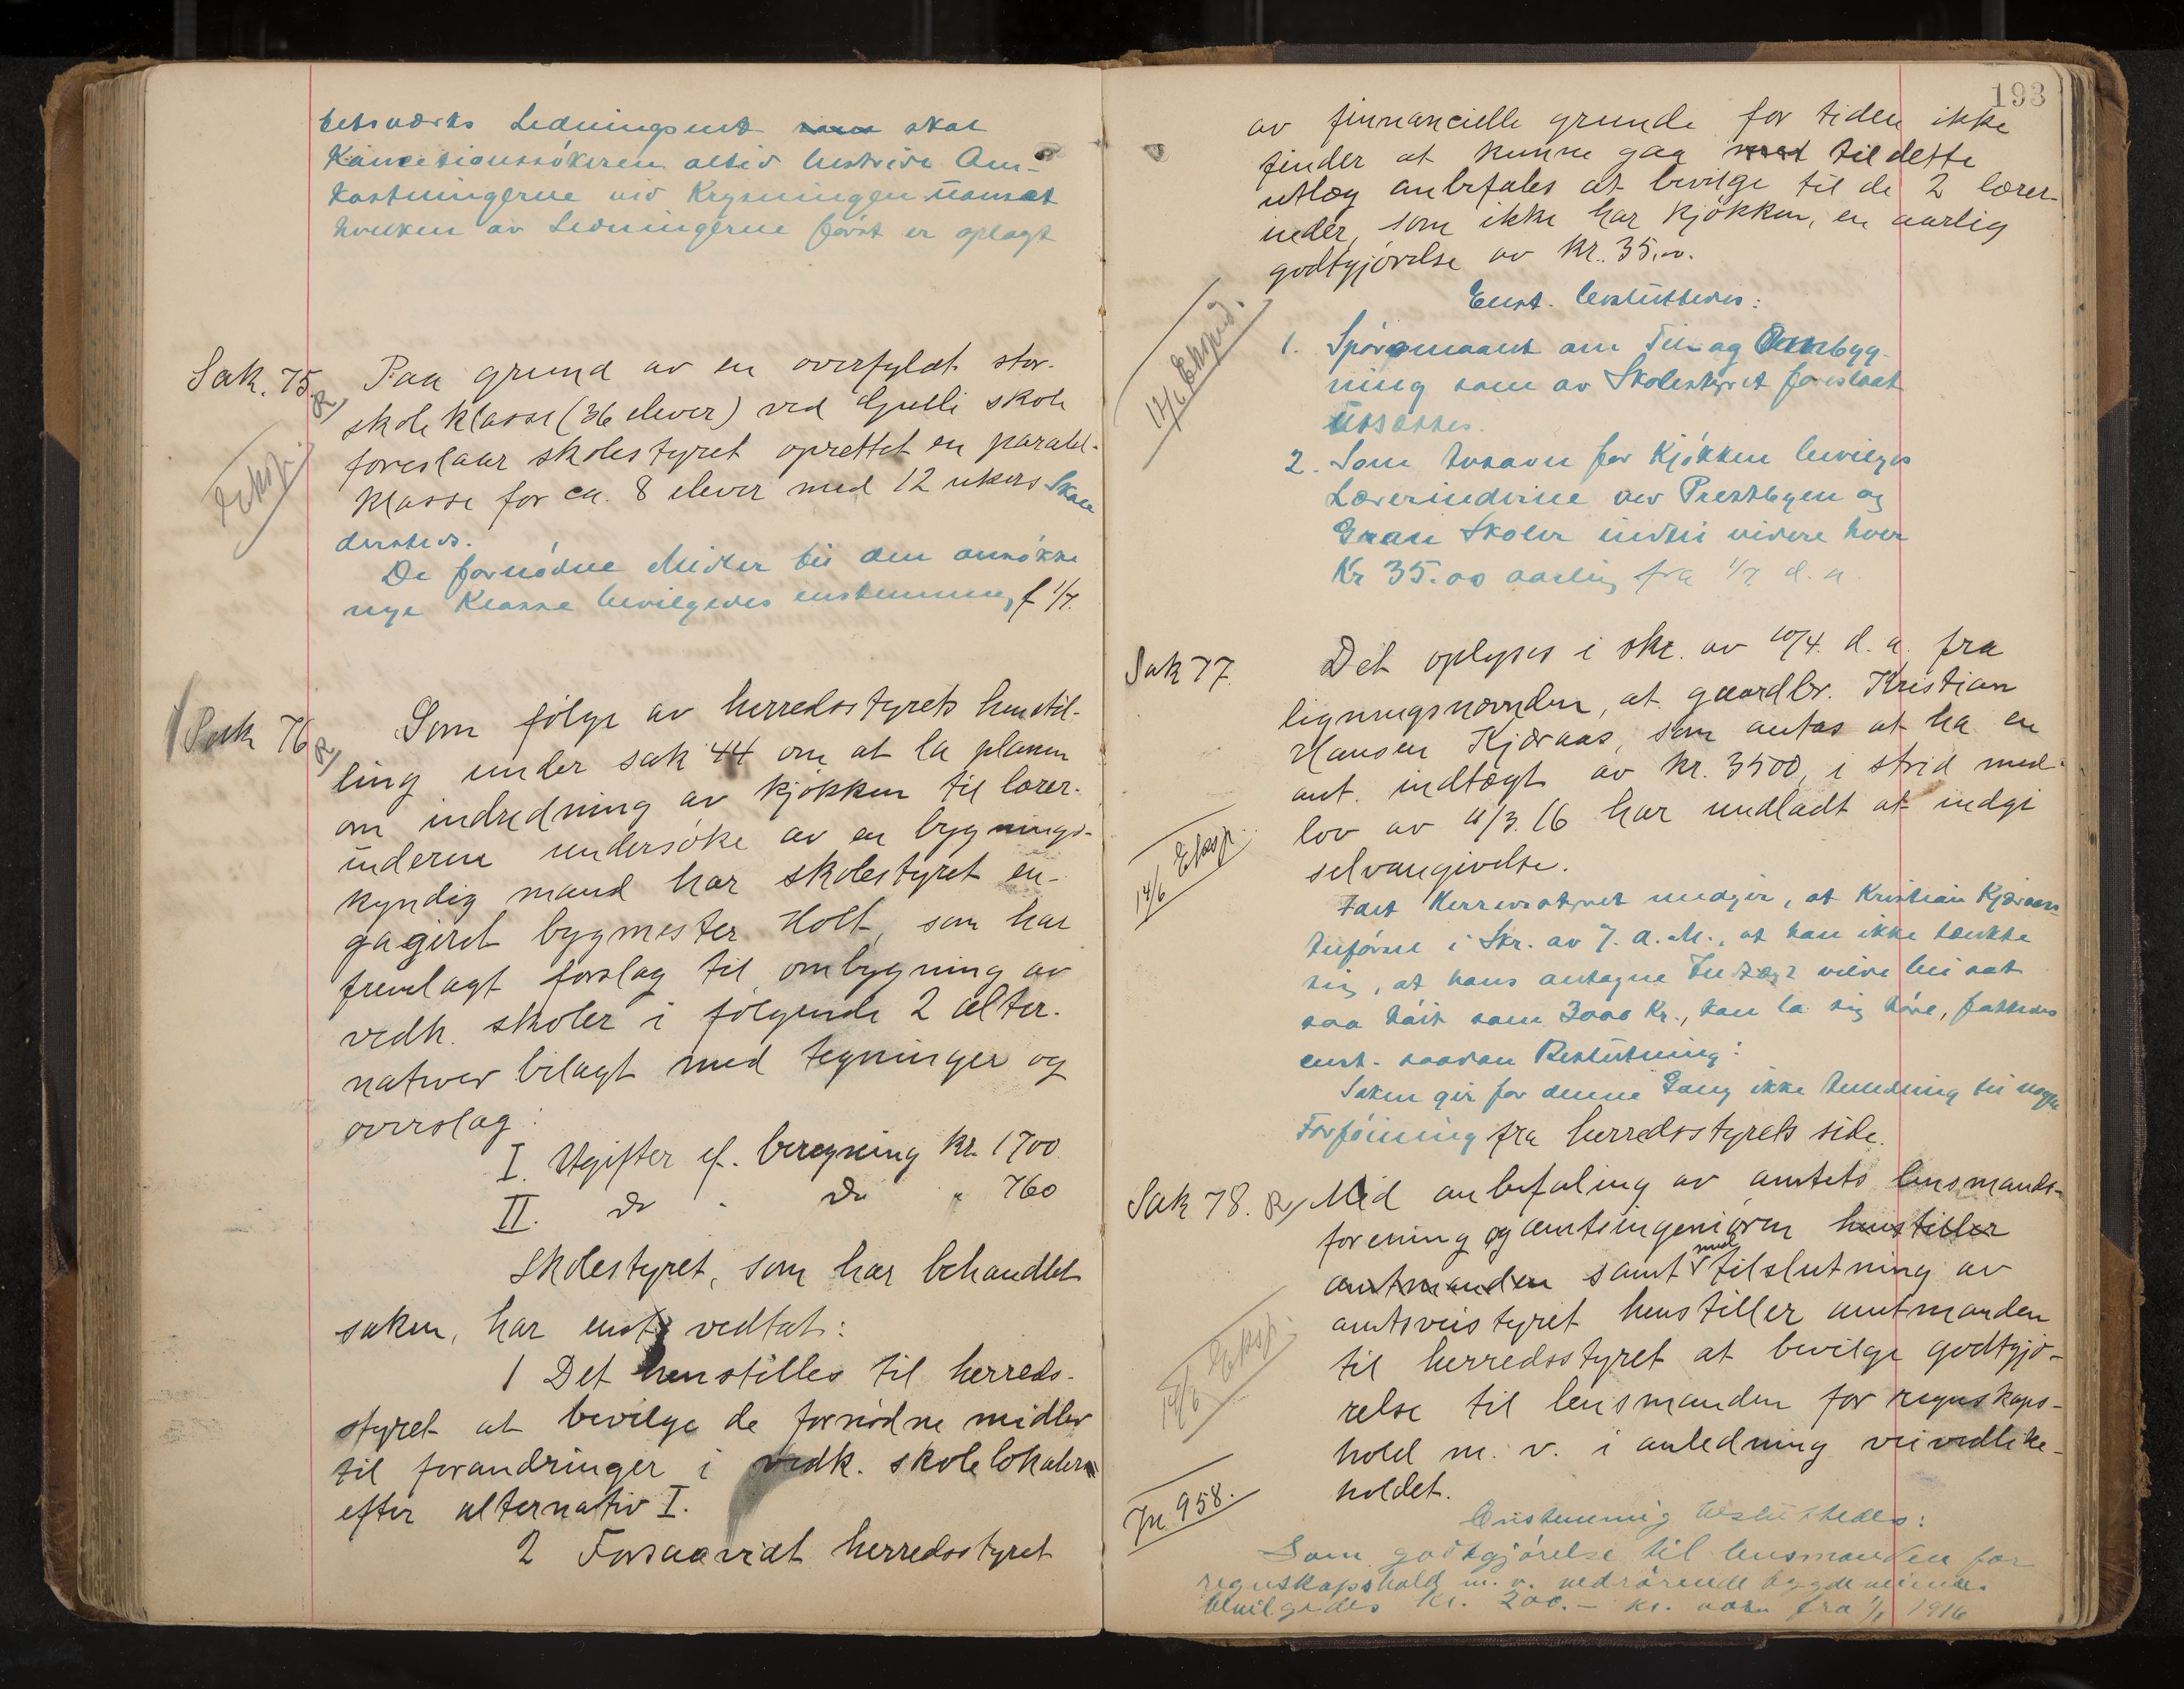 betsværks Ledningsnet som skal
Koncessionssökeren altid bestride Om-
kostningerne ved Krysningen uanset
hvilken av Ledningerne först er oplagt
Sak. 75. R
Eksp.
Paa grund av en overfyldt stor-
skoleklasse (36 elever) ved Gulli skole
foreslaar skolestyret oprettet en paralel-
klasse for ca. 8 elever med 12 ukers Skole
dersteds.
De fornödne Midler til den ansökte
nye Klasse bevilgedes enstemmig f 1/7.
Sak 76 R
Som følge av herredsstyrets henstil-
ling under sak 44 om at la planen
om indredning av kjøkken til lærer-
inderne undersøke av en bygnings-
kyndig mand har skolestyret en-
gageret bygmester Holt, som har
fremlagt forslag til ombygning av
vedk. skoler i følgende 2 alter-
nativer bilagt med tegninger og
overslag:
I. Utgifter ef. beregning kr. 1700
II. do - do " 760
Skolestyret, som har behandlet
saken, har enst. vedtat:
1 Det henstilles til herreds-
styret at bevilge de fornødne midler
til forandringer i vedk. skolelokaler
efter alternativ I.
2 Forsaavidt herredsstyret
193
av finnancielle grunde for tiden ikke
finder at kunne gaa med til dette
utlæg anbefales at bevilge til de 2 lærer-
inder, som ikke har kjøkken, en aarlig
godtgjørelse av kr. 35.00.
Enst. besluttedes:
12/6 Eksped.
1. Spörgsmaalet om Til- og Ombyg-
ning som av Skolestyret foreslaat
utsættes.
2. Som Avsavn for Kjökken bevilges
Lærerinderne ved Prestbyen og
Gran Skoler indtil videre hver
Kr 35.00 aarlig fra 1/7 d. a.
Sak 77.
Det oplyses i skr. av 10/4. d. a. fra
ligningsnævnden, at gaardbr. Kristian
Hansen Kjæraas, som antas at ha en
ant. indtægt av kr. 3500, i strid med
lov av 11/3.16 har undladt at indgi
selvangivelse.
14/6 Eksp.
Idet Herredsstyret medgir, at Kristian Kjæraas
Anförsel i Skr. av 7. d. M., at han ikke tænkte
sig, at hans antagne Indtægt vilde bli sat
saa höit som 3000 Kr., kan la sig höre, fattedes
enst. saadan Beslutning:
Saken gir for denne Gang ikke Anledning til nogen
Forföining fra herredsstyrets side.
Sak 78. R
Med anbefaling av amtets lensmands-
forening og amtsingeniøren henstiller
amtmanden samt med tilslutning av
amtsveistyret henstiller amtmanden
til herredsstyret at bevilge godtgjø-
relse til lensmanden for regnskaps-
hold m. v. i anledning veivedlike-
holdet.
14/6 Eksp.
Jr. 958.
Enstemmig besluttedes:
Som godtgjörelse til lensmanden for
regnskapshold m. v. vedrörende bygdeveiene
bevilgedes kr. 200.- kr. aarl. fra 1/1 1916